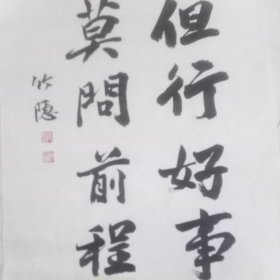 但行好事
莫問前程
竹隱